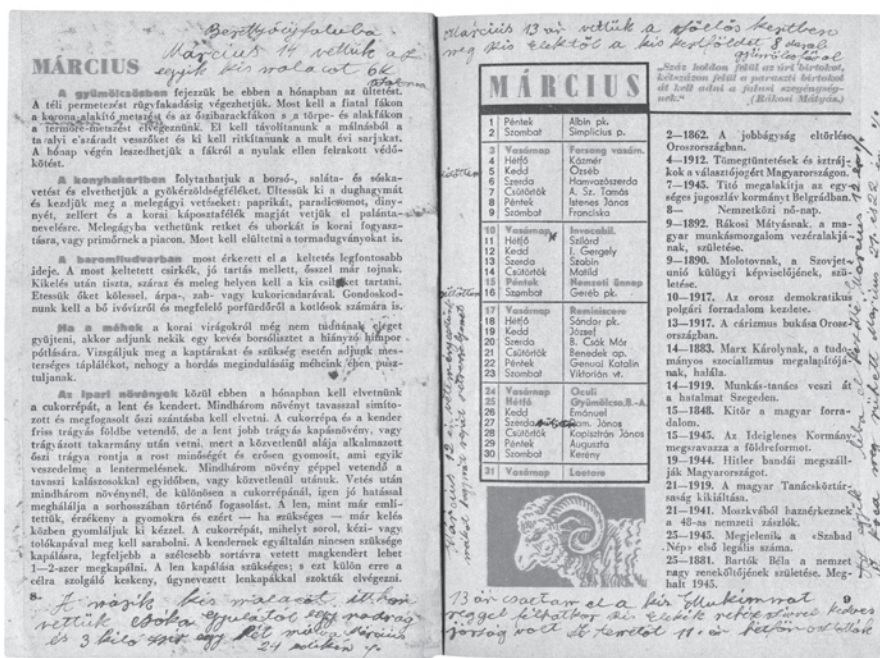 Berettyóújfaluba
Március 14 vettük az
egyik kis malacot 6k
MÁRCIUS
A gyümölcsösben fejezzük be ebben a hónapban az ültetést.
A téli permetezést rügyfakadásig végezhetjük. Most kell a fiatal fákon
a korona-alakító metszést és az őszibarackfákon s a törpe- és alakfákon
a termőre-metszést elvégeznünk. El kell távolítanunk a málnásból a
tavalyi elszáradt vesszőket és ki kell ritkítanunk a mult évi sarjakat.
A hónap végén leszedhetjük a fákról a nyulak ellen felrakott védő-
kötést.
A konyhakertben folytatbatjuk a borsó-, saláta- és sóska-
vetést és elvethetjük a gyökérzöldségféléket. Ültessük ki a dughagymát
és kezdjük meg a melegágyi vetéseket: paprikát, paradicsomot, diny-
nyét, zellert és a korai káposztafélék magját vetjük el palánta-
nevelésre. Melegágyba vethetünk retket és uborkát is korai fogyasz-
tásra, vagy primőrnek a piacon. Most kell elültetni a tormadugványokat is.
A baromfiudvarban most érkezett el a keltetés legfontosabb
ideje. A most keltetett csirkék, jó tartás mellett, ősszel már tojnak.
Kikelés után tiszta, száraz és meleg helyen kell a kis csibéket tartani.
Etessük őket kölessel, árpa-, zab- vagy kukoricadarával. Gondoskod-
nunk kell a bő ivóvízről és megfelelő porfürdőről a kotlósok számára is.
Ha a méhek a korai virágokról még nem tudnának eleget
gyüjteni, akkor adjunk nekik egy kevés borsólisztet a hiányzó himpor
pótlására. Vizsgáljuk meg a kaptárakat és szükség esetén adjunk mes-
terséges táplálékot, nehogy a hordás megindulásáig méheink éhen pusz-
tuljanak.
Az ipari növények közül ebben a hónapban kell elvetnünk
a cukorrépát, a lent és kendert. Mindhárom növényt tavasszal simíto-
zott és megfogasolt őszi szántásba kell elvetni. A cukorrépa és a kender
friss trágyás földbe vetendő, de a lent jobb trágyás kapásnövény, vagy
trágyázott takarmány után vetni, mert a közvetlenül alája alkalmazott
őszi trágya rontja a rost minőségét és erősen gyomosít, ami egyik
veszedelme a lentermelésnek. Mindhárom növény géppel vetendő a
tavaszi kalászosokkal egyidőben, vagy közvetlenül utánuk. Vetés után
mindhárom növénynél, de különösen a cukorrépánál, igen jó hatással
meghálálja a sorhosszában történő fogasolást. A len, mint már emlí-
tettük, érzékeny a gyomokra és ezért — ha szükséges — már kelés
közben gyomláljuk ki kézzel. A cukorrépát, mihelyt sorol, kézi- vagy
tolókapával meg kell sarabolni. A kendernek egyáltalán nincsen szüksége
kapálásra, legfeljebb a szélesebb sortávra vetett magkendert lehet
1—2-szer megkapálni. A len kapálása szükséges; s ezt külön erre a
célra szolgáló keskeny, úgynevezett lenkapákkal szokták elvégezni.
8
A másik kis malacot itthon
vettük Csóka gyulától egy nadrág
és 3 kiló egy két Március
24
Március 13 án vettük a szőllős kertben
meg kis elektől a kis kertföldet 8 darab
gyümölcsfával
„Száz holdon felül az úri birtokot,
kétszázon felül a paraszti birtokot
át kell adni a falusi szegénység-
nek.“ (Rákosi Mátyás.)
MÁRCIUS
1 Péntek Albin pk.
2 Szombat Simplicius p.
3 Vasárnap Farsang vasárn.
4 Hétfő Kázmér
5 Kedd Özséb
6 Szerda Hamvazószerda
7 Csütörtök A. Sz. Tamás
8 Péntek Istenes János
9 Szombat Franciska
10 Vasárnap Invocabit.
11 Hétfő Szilárd
12 Kedd I. Gergely
13 Szerda Szabin
14 Csütörtök Matild
15 Péntek Nemzeti ünnep
16 Szombat Geréb pk.
17 Vasárnap Reminiscere
18 Hétfő Sándor pk.
19 Kedd József
20 Szerda B. Csák Mór
21 Csütörtök Benedek ap.
22 Péntek Genuai Katalin
23 Szombat Viktorián vt.
24 Vasárnap Oculi
25 Hétfő Gyümölcso.B.-A.
26 Kedd Emánuel
27 Szerda Dam. János
28 Csütörtök Kapisztrán János
29 Péntek Auguszta
30 Szombat Kerény
31 Vasárnap Laetare
2—1862. A jobbágyság eltörlése
Oroszországban.
4—1912. Tömegtüntetések és sztráj-
kok a választójogért Magyarországon.
7—1945. Titó megalakítja az egy-
séges jugoszláv kormányt Belgrádban.
8— Nemzetközi nő-nap.
9—1892. Rákosi Mátyásnak, a ma-
gyar munkásmozgalom vezéralakjá-
nak, születése.
9—1890. Molotovnak, a Szovjet-
unió külügyi képviselőjének, szü-
letése.
10—1917. Az orosz demokratikus
polgári forradalom kezdete.
13—1917. A cárizmus bukása Orosz-
országban.
14—1883. Marx Károlynak, a tudo-
mányos szocializmus megalapítójá-
nak, halála.
14—1919. Munkás-tanács veszi át
a hatalmat Szegeden.
15—1848. Kitör a magyar forra-
dalom.
15—1945. Az Ideiglenes Kormány
megszavazza a földreformot.
19—1944. Hitler bandái megszáll-
ják Magyarországot.
21—1919. A magyar Tanácsköztár-
saság kikiáltása.
21—1941. Moszkvából hazaérkeznek
a 48-as nemzeti zászlók.
25—1945. Megjelenik a «Szabad
Nép» első legális száma.
25—1881. Bartók Béla a nemzet
nagy zeneköltőjének születése. Meg-
halt 1945.
9
13 án csaltam el a kis
reggel kis kedves
jószág volt 11-én hétfőn